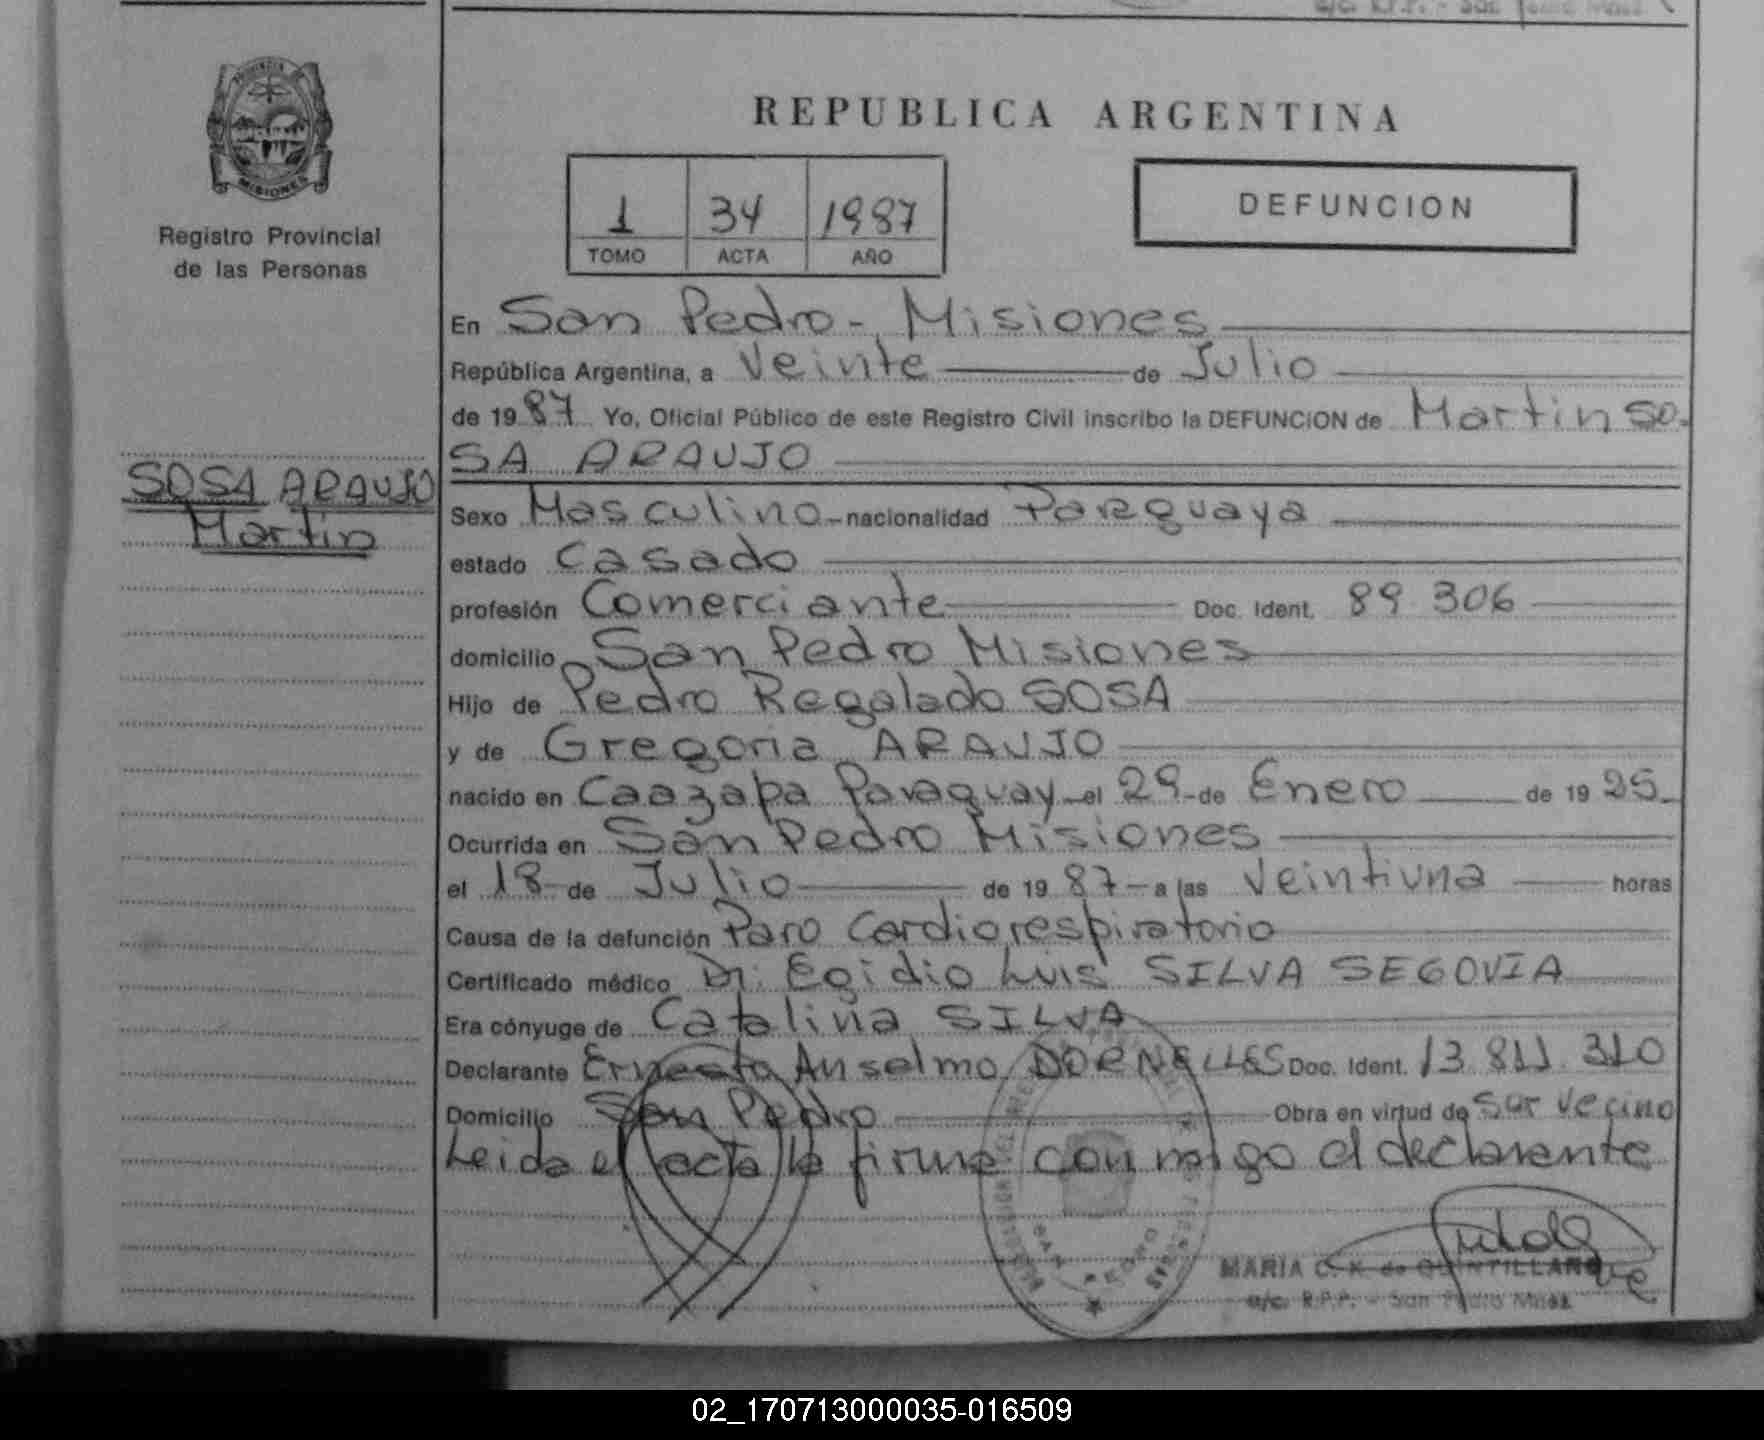 PROVINCIA
MISIONES
Registro Provincial
de las Personas
SOSA ARAUJO
Martin
REPUBLICA ARGENTINA
1 34 1987
TOMO ACTA AÑO
DEFUNCION
En San Pedro - Misiones
República Argentina, a Veinte de Julio
de 19 87 Yo, Oficial Público de este Registro Civil inscribo la DEFUNCION de Martin SO-
SA ARAUJO
Sexo Masculino - nacionalidad Paraguaya
estado Casado
profesión Comerciante Doc. Ident. 89.306
domicilio San Pedro Misiones
Hijo de Pedro Regalado SOSA
y de Gregoria ARAUJO
nacido en Caazapa Paraguay el 29 de Enero de 19 25
Ocurrida en San Pedro Misiones
el 18 de Julio de 19 87 a las Veintiuna horas
Causa de la defunción Paro Cardiorespiratorio
Certificado médico Dr. Egidio Luis SILVA SEGOVIA
Era cónyuge de Catalina SILVA
Declarante Ernesto Anselmo DORNELLES Doc. Ident. 13.811.310
Domicilio San Pedro Obra en virtud de Ser vecino
Leida el acta la firma con migo el declarante
SAN PEDRO
MARIA C. K. de QUINTILLAN
a/c. R.P.P. - San Pedro Mnes
02_170713000035-016509